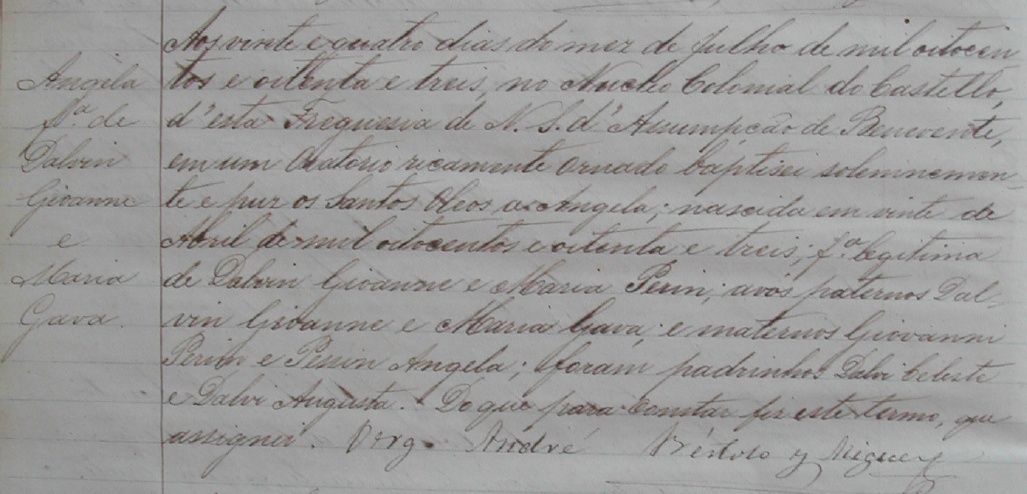 Angela
f.ª de
Dalvin
Giovanne
e
Maria
Gava.
Aos vinte e quatro dias do mez de Julho de mil oitocen
tos e oitenta e treis, no Nucleo Colonial do Castello,
d'esta Freguesia de N. S. d'Assumpção de Benevente,
em um Oratorio ricamente ornado baptisei solemnemen-
te e puz os Santos Oleos a Angela; nascida em vinte de
Abril de mil oitocentos e oitenta e treis; f.ª legitima
de Dalvin Giovanne e Maria Perin; avós paternos Dal-
vin Giovanne e Maria Gava; e maternos Giovanni
Perin e Pessin Angela; foram padrinhos Dalvi Celeste
e Dalvi Augusta. Do que para constar fiz este termo, que
assignei. André y Miguez